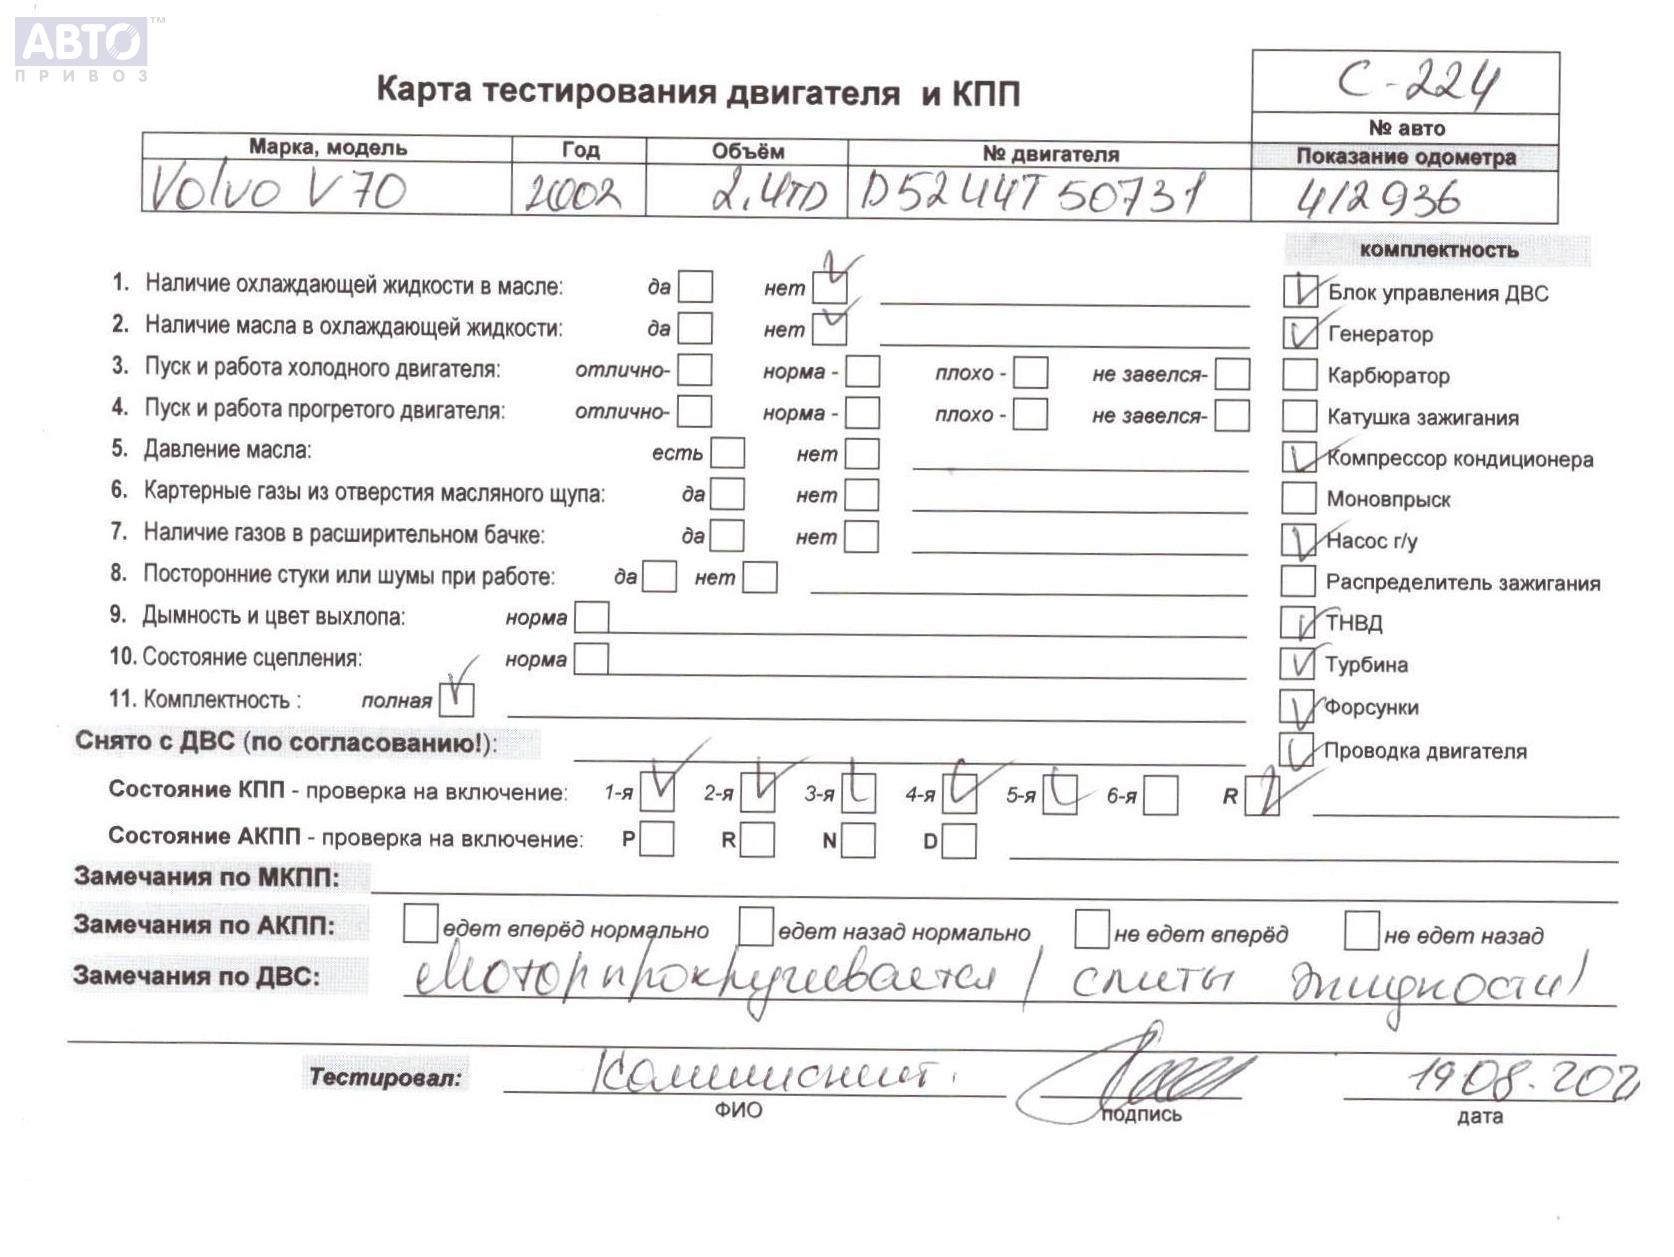 АВТО™
ПРИВОЗ
С-224
Карта тестирования двигателя и КПП
№ авто
Марка, модель Год Объём № двигателя Показание одометра
Volvo V70 2002 2.4TD D5244T 50731 412936
комплектность
1. Наличие охлаждающей жидкости в масле: да нет Блок управления ДВС
2. Наличие масла в охлаждающей жидкости: да нет Генератор
3. Пуск и работа холодного двигателя: отлично- норма - плохо - не завелся- Карбюратор
4. Пуск и работа прогретого двигателя: отлично- норма - плохо - не завелся- Катушка зажигания
5. Давление масла: есть нет Компрессор кондиционера
6. Картерные газы из отверстия масляного щупа: да нет Моновпрыск
7. Наличие газов в расширительном бачке: да нет Насос г/у
8. Посторонние стуки или шумы при работе: да нет Распределитель зажигания
9. Дымность и цвет выхлопа: норма ТНВД
10. Состояние сцепления: норма Турбина
11. Комплектность : полная Форсунки
Снято с ДВС (по согласованию!): Проводка двигателя
Состояние КПП - проверка на включение: 1-я 2-я 3-я 4-я 5-я 6-я R
Состояние АКПП - проверка на включение: P R N D
Замечания по МКПП:
Замечания по АКПП: едет вперёд нормально едет назад нормально не едет вперёд не едет назад
Замечания по ДВС: Мотор прокручивается / слиты жидкости /
Тестировал: 19 08. 202
ФИО подпись дата